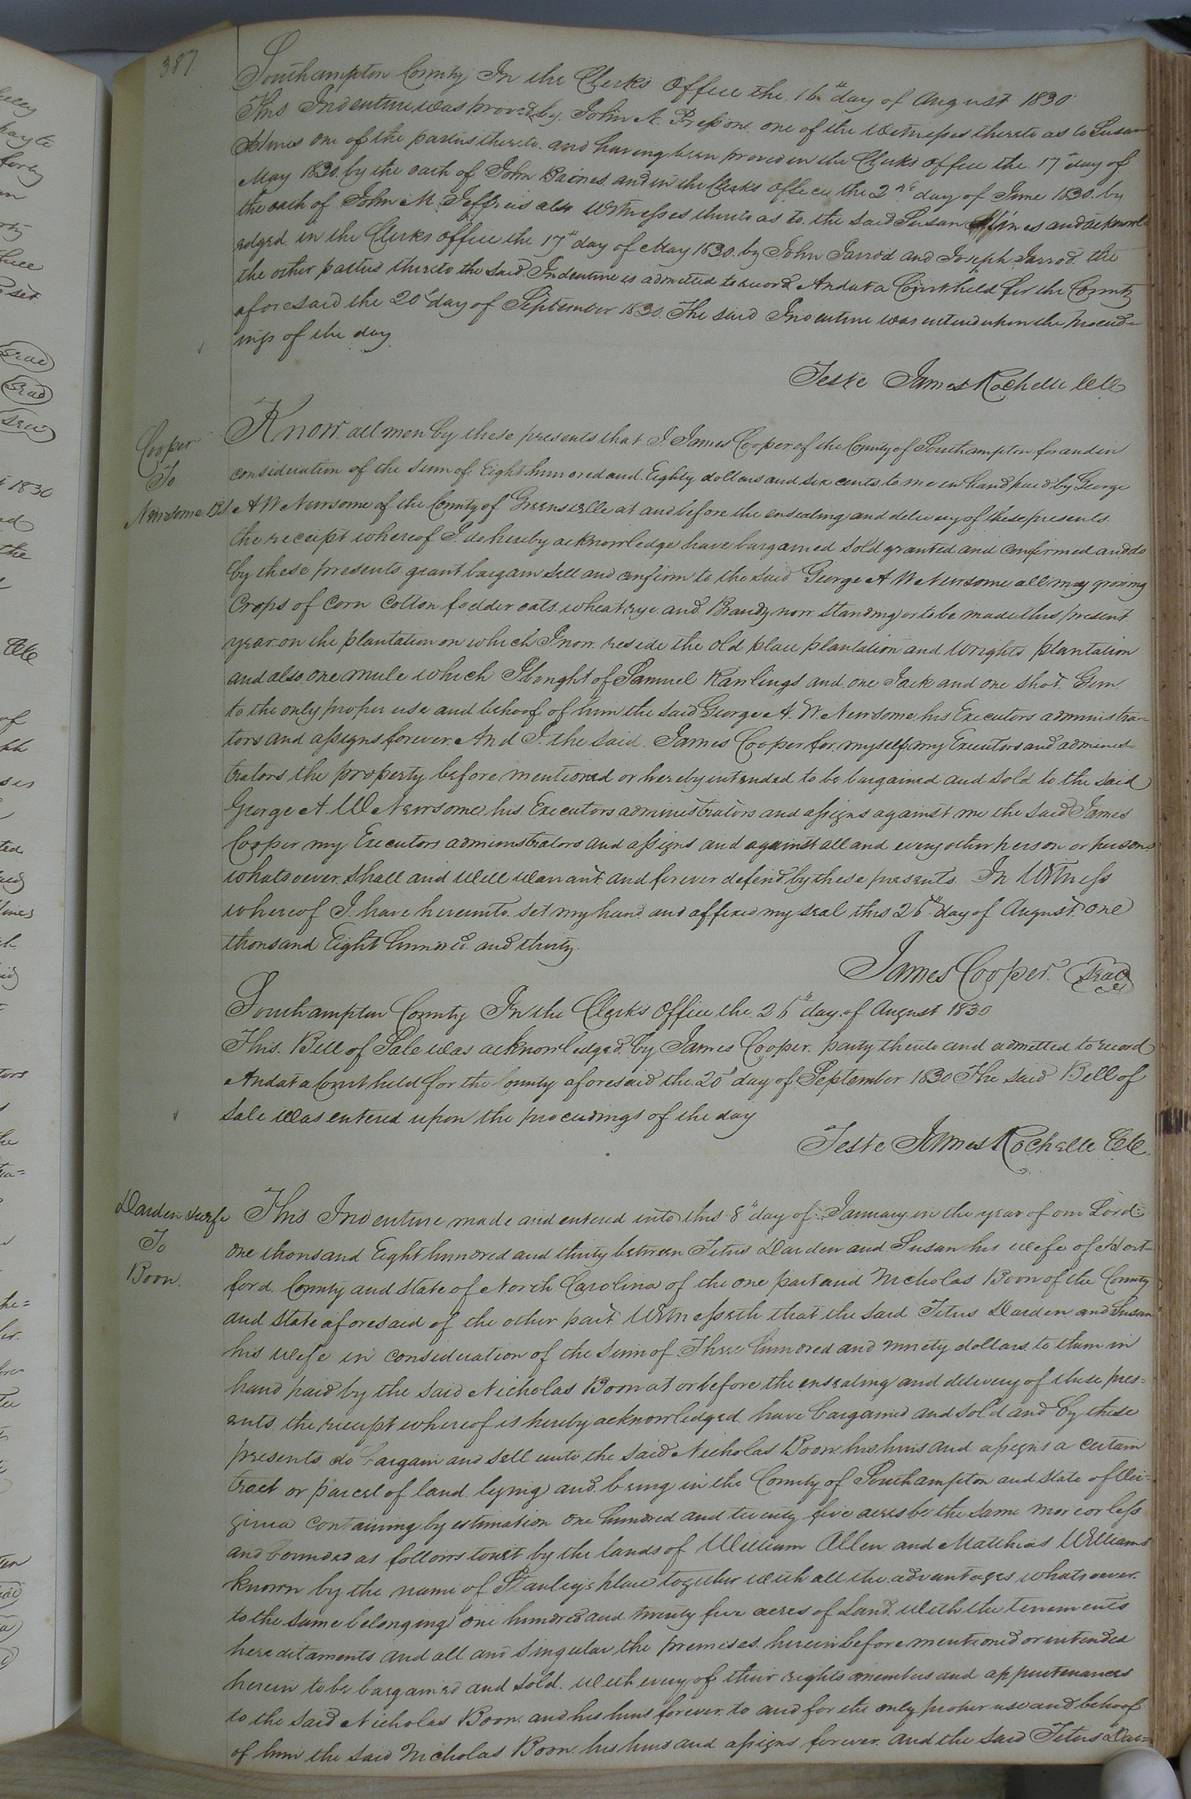 387
Southampton County In the Clerks Office the 16th day of August 1830
This Indenture was proved by John A. Persons one of the Witnesses thereto as to Susan
one of the parties thereto and having been proved in the Clerks office the 17th day of
May 1830 by the oath of John Barnes and in the Clerks office the 2nd day of June 1830 by
the oath of John M. Jeffreis also Witnesses thereto as to the said Susan and acknowl
edged in the Clerks office the 17th day of May 1830 by John Jarrod and Joseph Jarrod the
the other parties thereto the said Indenture is admitted to record And at a Court held for the County
aforesaid the 20th day of September 1830 The said Indenture was entered upon the proceed-
ings of the day
Teste James Rochelle CC
Cooper
To
Newsome BS
Know all men by these presents that I James Cooper of the County of Southampton for and in
consideration of the sum of Eight hundred and Eighty dollars and six cents to me in hand paid by George
A W Newsome of the County of Greensville at and before the ensealing and delivery of these presents
the receipt whereof I do hereby acknowledge have bargained sold granted and confirmed and do
by these presents grant bargain sell and confirm to the said George A W Newsome all my growing
Crops of corn cotton fodder oats wheat rye and Brandy now standing or to be made this present
year on the plantation on which I now reside the old place plantation and Wrights plantation
and also one mule which I bought of Samuel Rawlings and one Jack and one Shot Gun
to the only proper use and behoof of him the said George A. W Newsome his Executors administra-
tors and assigns forever And I the said James Cooper for myself my Executors and adminis
trators the property before mentioned or hereby intended to be bargained and sold to the said
George A. W Newsome his Executors administrators and assigns against me the said James
Cooper my Executors administrators and assigns and against all and every other person or persons
whatsoever shall and will warrant and forever defend by these presents In Witness
whereof I have hereunto set my hand and affixed my seal this 26th day of August one
thousand Eight hundred and thirty
James Cooper Seal
Southampton County In the Clerks Office the 26th day of August 1830
This Bill of Sale was acknowledged by James Cooper party thereto and admitted to record
And at a Court held for the County aforesaid the 20th day of September 1830 The said Bill of
Sale was entered upon the proceedings of the day
Teste James Rochelle CC
Darden & wife
To
Boon
This Indenture made and entered into this 8th day of January in the year of our Lord
one thousand Eight hundred and thirty between Titus Darden and Susan his wife of Hert-
ford County and State of North Carolina of the one part and Nicholas Boon of the County
and State aforesaid of the other part Witnesseth that the said Titus Darden and Susan
his wife in consideration of the sum of Three hundred and ninety dollars to them in
hand paid by the said Nicholas Boon at or before the ensealing and delivery of these pres=
ents the receipt whereof is hereby acknowledged have bargained and sold and by these
presents do bargain and sell unto the said Nicholas Boon his heirs and assigns a certain
tract or parcel of land lying and being in the County of Southampton and State of Vir=
ginia containing by estimation one hundred and twenty five acres be the same more or less
and bounded as follows towit by the lands of William Allen and Matthias Williams
known by the name of Stanley's place together with all the advantages whatsoever
to the same belonging one hundred and twenty five acres of Land with the tenements
hereditaments and all and singular the premises herein before mentioned or intended
herein to be bargained and sold with every of their rights members and appurtenances
to the said Nicholas Boon and his heirs forever to and for the only proper use and behoof
of him the said Nicholas Boon his heirs and assigns forever and the said Titus Dar=